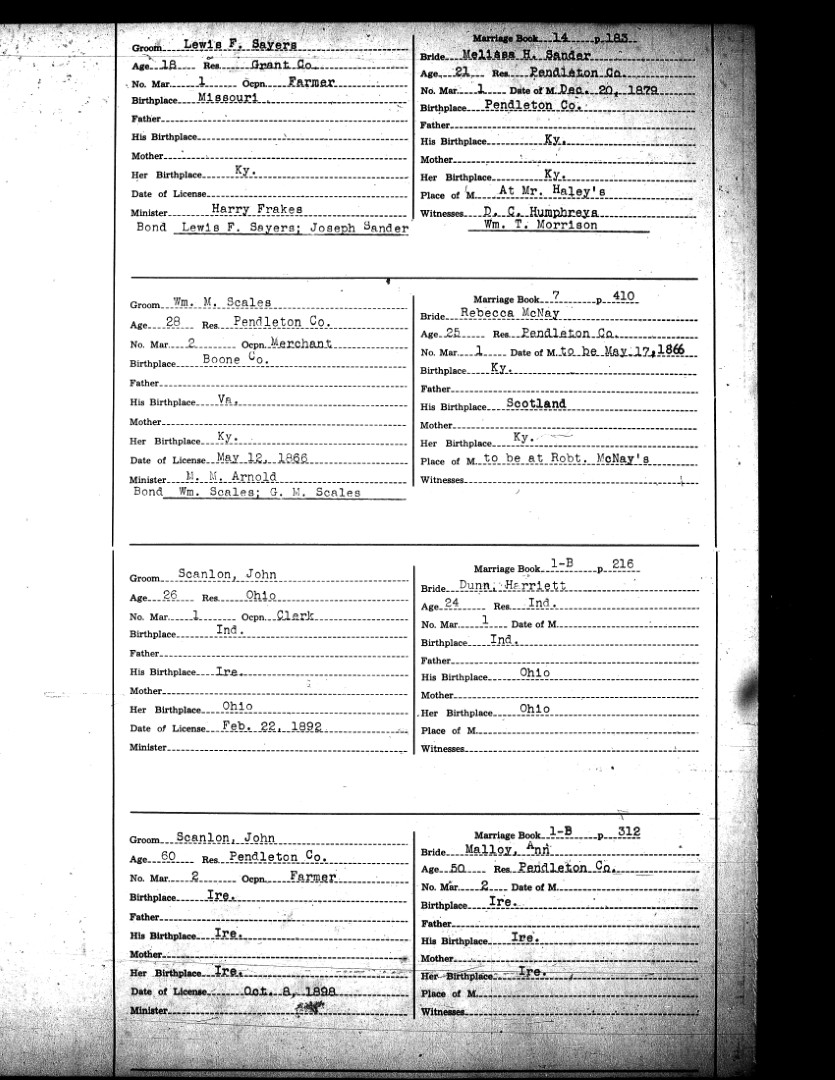 Groom Lewis F. Sayers
Age 18 Res Grant Co.
No. Mar 1 Ocpn. Farmer
Birthplace Missouri
Father
His Birthplace
Mother
Her Birthplace Ky.
Date of License
Minister Harry Frakes
Bond Lewis F. Sayers; Joseph Sander
Marriage Book 14 p 183
Bride Melissa H. Sander
Age 21 Res Pendleton Co.
No. Mar 1 Date of M. Dec. 20, 1879
Birthplace Pendleton Co.
Father
His Birthplace Ky.
Mother
Her Birthplace Ky.
Place of M. At Mr. Haley's
Witnesses D. C. Humphreys
Wm. T. Morrison
Groom Wm. M. Scales
Age 28 Res Pendleton Co.
No. Mar 2 Ocpn. Merchant
Birthplace Boone Co.
Father
His Birthplace Va.
Mother
Her Birthplace Ky.
Date of License May 12, 1866
Minister M. M. Arnold
Bond Wm. Scales; G. M. Scales
Marriage Book 7 p 410
Bride Rebecca McNay
Age 25 Res Pendleton Co.
No. Mar 1 Date of M. to be May 17, 1866
Birthplace Ky.
Father
His Birthplace Scotland
Mother
Her Birthplace Ky.
Place of M. to be at Robt. McNay's
Witnesses
Groom Scanlon, John
Age 26 Res Ohio
No. Mar 1 Ocpn. Clerk
Birthplace Ind.
Father
His Birthplace Ire.
Mother
Her Birthplace Ohio
Date of License Feb. 22, 1892
Minister
Marriage Book 1-B p 216
Bride Dunn, Harriett
Age 24 Res Ind.
No. Mar 1 Date of M.
Birthplace Ind.
Father
His Birthplace Ohio
Mother
Her Birthplace Ohio
Place of M.
Witnesses
Groom Scanlon, John
Age 60 Res Pendleton Co.
No. Mar 2 Ocpn. Farmer
Birthplace Ire.
Father
His Birthplace Ire.
Mother
Her Birthplace Ire.
Date of License Oct. 8, 1898
Minister
Marriage Book 1-B p 312
Bride Malloy, Ann
Age 50 Res Pendleton Co.
No. Mar 2 Date of M.
Birthplace Ire.
Father
His Birthplace Ire.
Mother
Her Birthplace Ire.
Place of M.
Witnesses